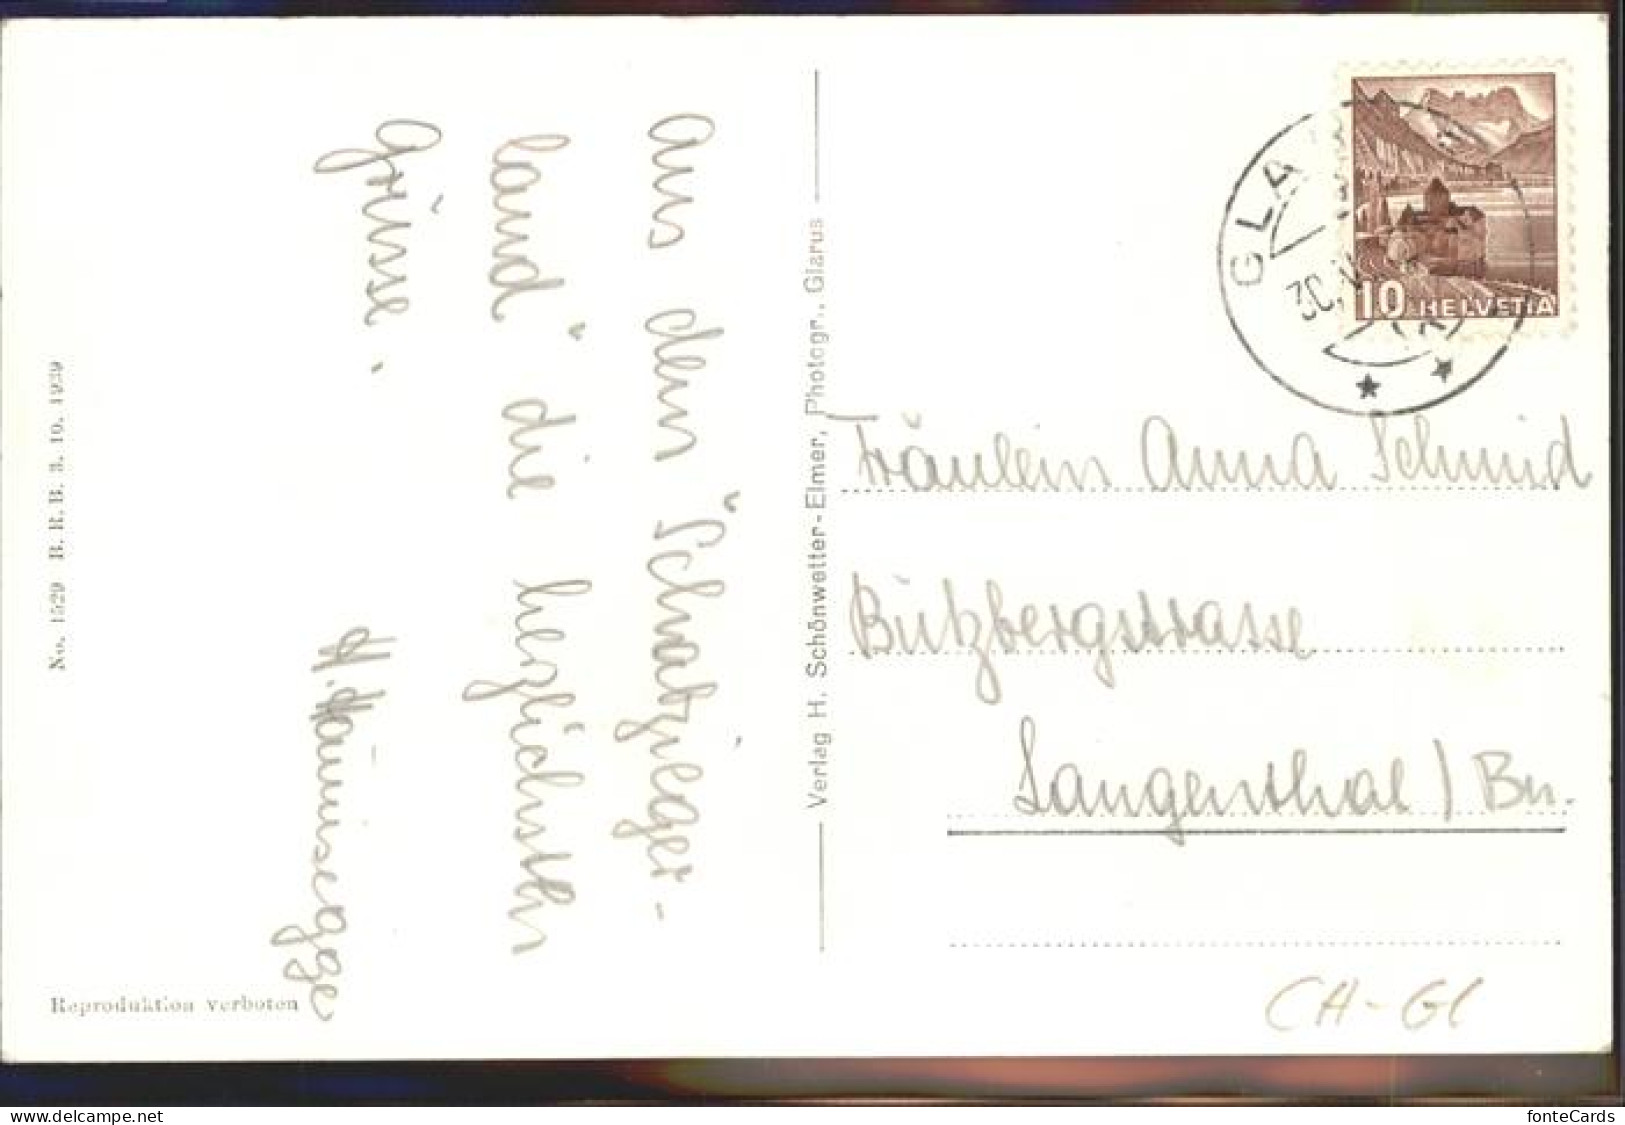 Aus dem "Schabzieger-
land" die herzlichsten
Grüsse.
No. 1529 B. R. B. 3. 10. 1939
Reproduktion verboten
Verlag H. Schönwetter-Elmer, Photogr., Glarus
GLA
30.
10 HELVETIA
Fräulein Anna Schmid
Bützbergstrasse
Langenthal / Bn.
CH-Gl
delcampe.net
fonteCards